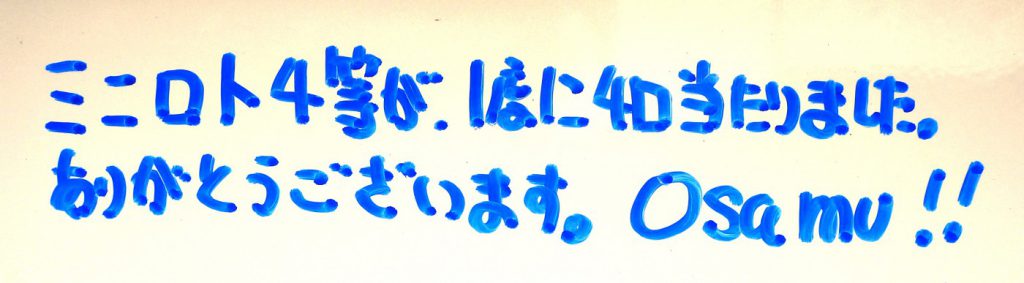 ミニロト4等が、1度に4口当たりました。
ありがとうございます。Osamu!!